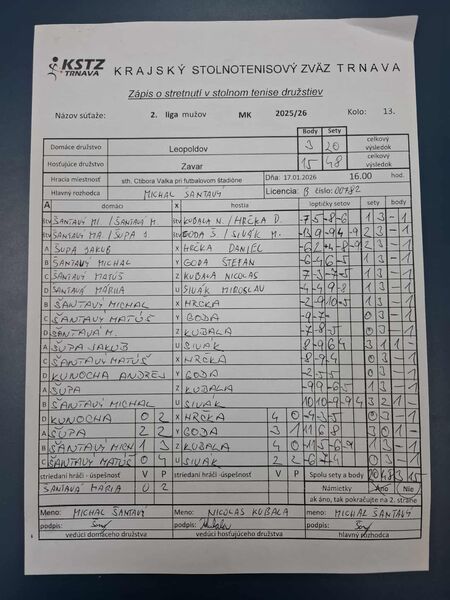 KSTZ
TRNAVA
KRAJSKÝ STOLNOTENISOVÝ ZVÄZ TRNAVA
Zápis o stretnutí v stolnom tenise družstiev
Názov súťaže: 2. liga mužov MK 2025/26 Kolo: 13.
Body Sety
Domáce družstvo Leopoldov 3 20 celkový výsledok
Hosťujúce družstvo Zavar 15 48 celkový výsledok
Hracia miestnosť sth. Ctibora Valka pri futbalovom štadióne Dňa: 17.01.2026 16.00 hod.
Hlavný rozhodca MICHAL ŠANTAVÝ Licencia: B číslo: 00782
A domáci X hostia loptičky setov sety body
štv ŠANTAVÝ MI. / ŠANTAVÝ M. štv KUBALA N. / HRČKA D. -7 5 -8 -6 1 3 - 1
štv ŠANTAVÝ MA. / ŠUPA J. štv GODA Š / SIVÁK M. 2 3 - 1
A ŠUPA JAKUB X HRČKA DANIEL 2 3 - 1
B ŠANTAVÝ MICHAL Y GODA ŠTEFAN 1 3 - 1
C ŠANTAVÝ MATÚŠ Z KUBALA NICOLAS 1 3 - 1
D ŠANTAVÁ MÁRIA U SIVÁK MIROSLAV 1 3 - 1
B ŠANTAVÝ MICHAL X HRČKA 1 3 - 1
C ŠANTAVÝ MATÚŠ Y GODA 0 3 - 1
D ŠANTAVÁ M. Z KUBALA -7 -8 -5 0 3 - 1
A ŠUPA JAKUB U SIVÁK 8 -9 6 4 3 1 1 -
C ŠANTAVÝ MATÚŠ X HRČKA -8 -9 -4 0 3 - 1
D KUNOCHA ANDREJ Y GODA 0 3 - 1
A ŠUPA Z KUBALA 1 3 - 1
B ŠANTAVÝ MICHAL U SIVÁK 3 2 1 -
D KUNOCHA 0 2 X HRČKA 4 0 -4 -3 -5 0 3 - 1
A ŠUPA 2 2 Y GODA 3 1 11 6 8 3 0 1 -
B ŠANTAVÝ MICH 1 3 Z KUBALA 4 0 1 3 - 1
C ŠANTAVÝ MATÚŠ 0 4 U SIVÁK 2 2 0 3 - 1
striedaní hráči - úspešnosť V P striedaní hráči - úspešnosť V P Spolu sety a body 20 48 3 15
ŠANTAVÁ MÁRIA 0 2 Námietky Áno Nie
ak áno, tak pokračujte na 2. strane
Meno: MICHAL ŠANTAVÝ Meno: NICOLAS KUBALA Meno: MICHAL ŠANTAVÝ
podpis: podpis: podpis:
vedúci domáceho družstva vedúci hosťujúceho družstva hlavný rozhodca